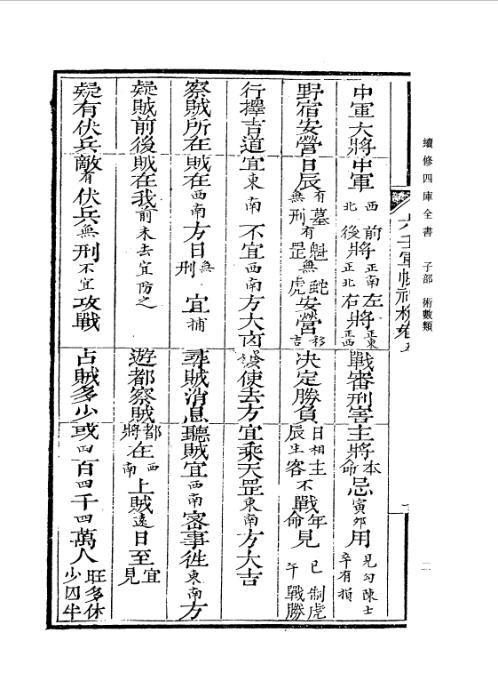 續修四庫全書 子部 術數類
二
中軍大將中軍西北前將正南左將正東後將正北右將正西戰審刑害主將本命忌寅卯用見勾陳士卒有損
野宿安營日辰有墓有魁罡無刑無虵虎安營移吉决定勝負日相主辰生客不戰年命見巳午制虎戰勝
行擇吉道宜東南不宜西南方大凶發使去方宜乘天罡東南方大吉
察賊所在賊在西南方日無刑宜捕賊消息聽賊宜西南審事徃東南方
疑賊前後賊在我前未去宜防之遊都察賊都將在西南上賊遠日至宜見
疑有伏兵敵有伏兵無刑不宜攻戰占賊多少或四百四千四萬人旺多休少囚半